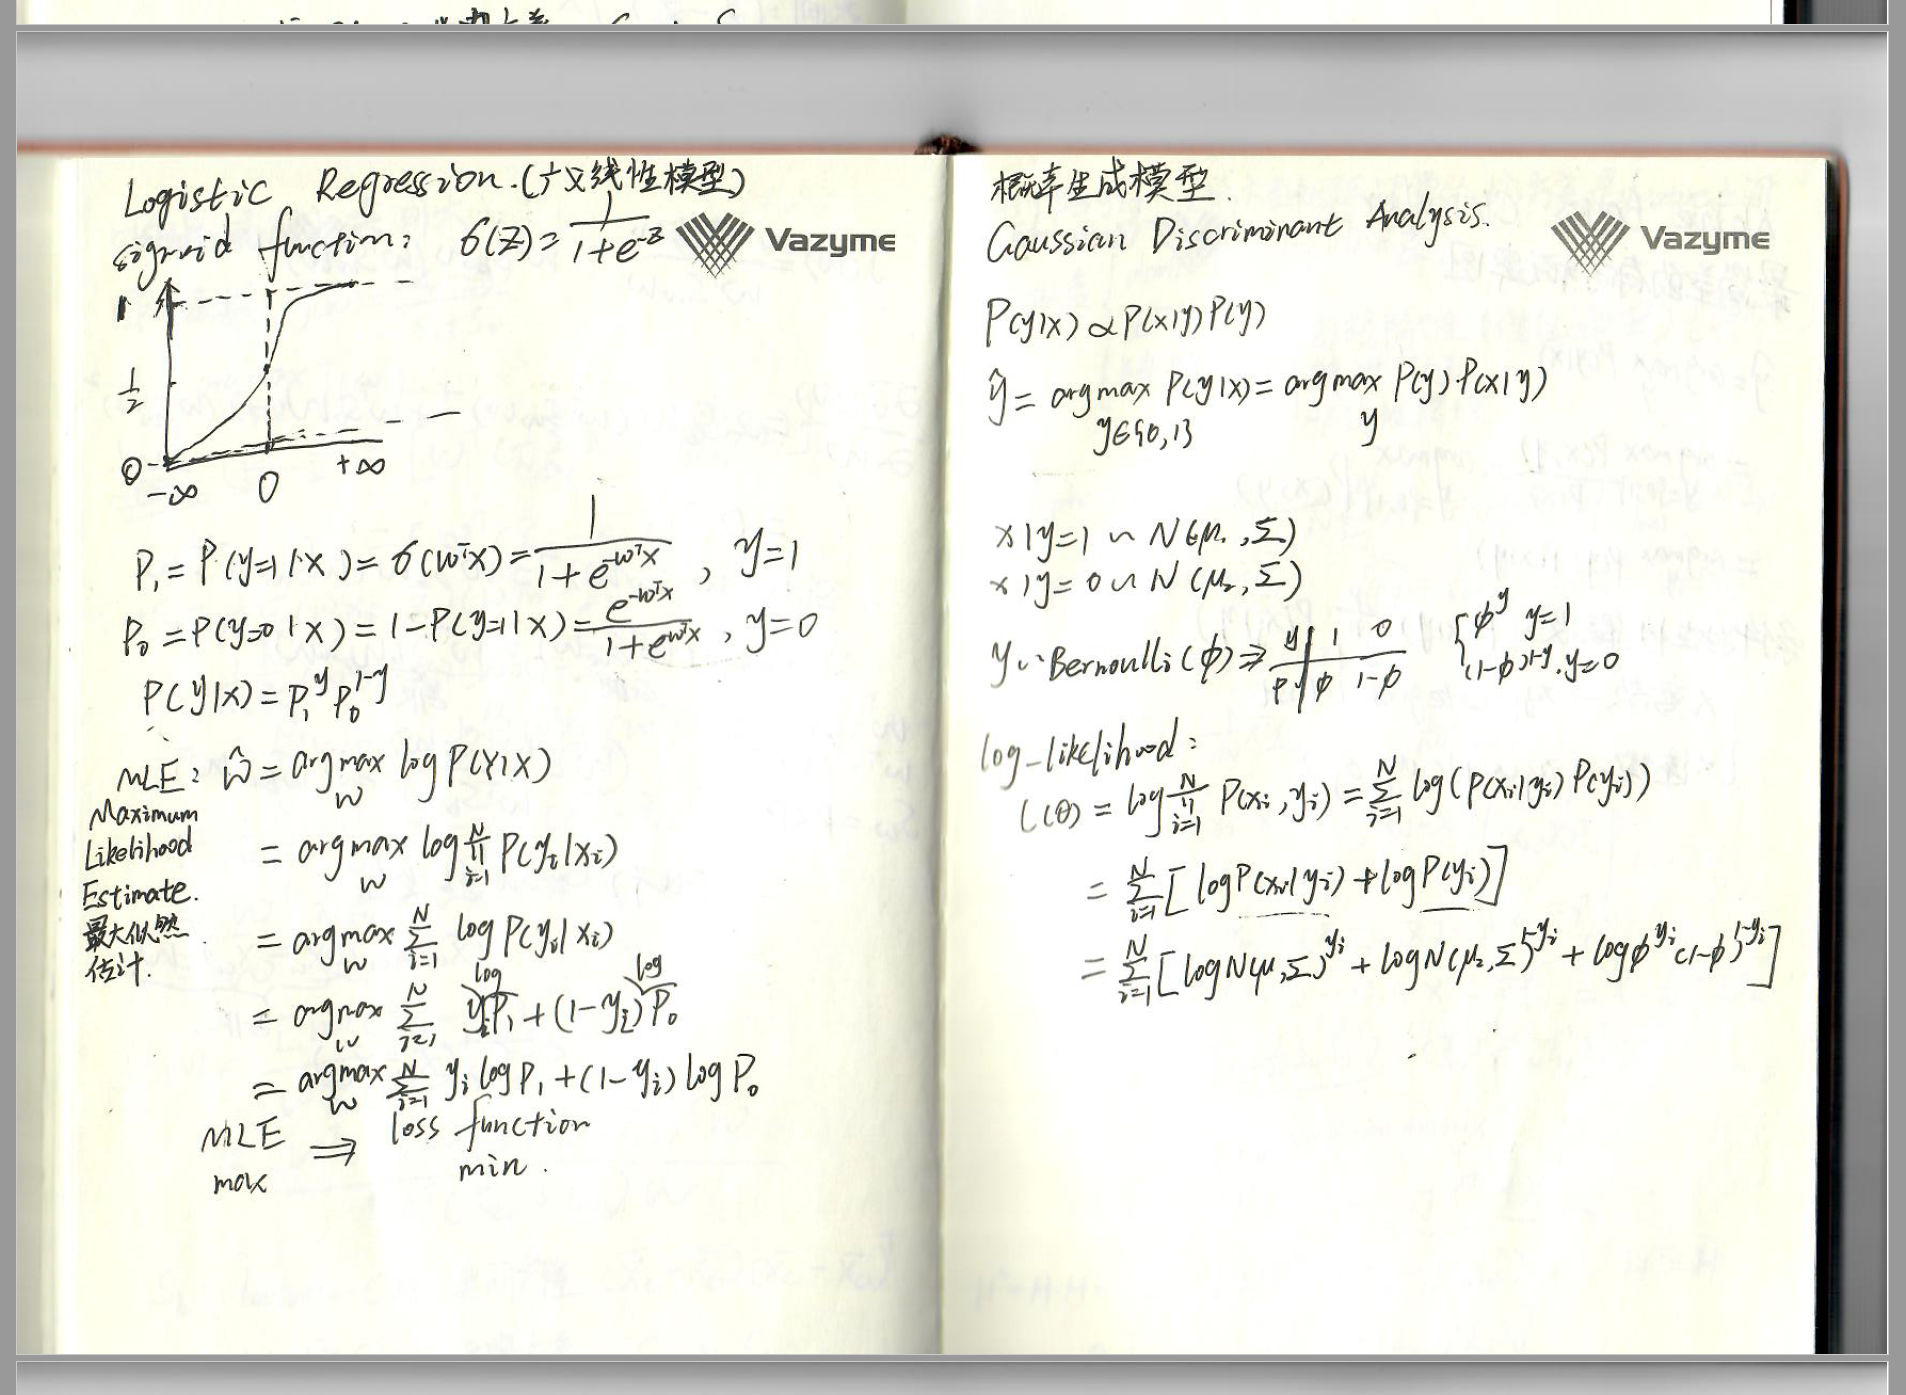 Logistic Regression.(广义线性模型)
sigmoid function: σ(z)=1/(1+e^-z)
Vazyme
1
1/2
0
-∞ 0 +∞
P₁ = P(y=1|x) = σ(wᵀx) = 1/(1+e^-wᵀx) , y=1
P₀ = P(y=0|x) = 1-P(y=1|x) = e^-wᵀx/(1+e^wᵀx) , y=0
P(y|x) = P₁^y P₀^1-y
MLE: ŵ = argmax_w log P(Y|X)
Maximum
Likelihood
Estimate.
最大似然
估计.
= argmax_w log ∏_{i=1}^N P(yᵢ|xᵢ)
= argmax_w ∑_{i=1}^N log P(yᵢ|xᵢ)
log log
= argmax_w ∑_{i=1}^N yᵢP₁ + (1-yᵢ)P₀
= argmax_w ∑_{i=1}^N yᵢ log P₁ + (1-yᵢ) log P₀
MLE ⇒ loss function
max min.
概率生成模型.
Gaussian Discriminant Analysis.
Vazyme
P(y|x) ∝ P(x|y)P(y)
ŷ = argmax_{y∈{0,1}} P(y|x) = argmax_y P(y)·P(x|y)
x|y=1 ~ N(μ₁,Σ)
x|y=0 ~ N(μ₂,Σ)
y ~ Bernoulli(φ) ⇒ y 1 0 { φ^y y=1
P φ 1-φ (1-φ)^1-y. y=0
log-likelihood:
L(θ) = log ∏_{i=1}^N P(xᵢ,yᵢ) = ∑_{i=1}^N log(P(xᵢ|yᵢ)P(yᵢ))
= ∑_{i=1}^N [log P(xᵢ|yᵢ) + log P(yᵢ)]
= ∑_{i=1}^N [log N(μ₁,Σ)^yᵢ + log N(μ₂,Σ)^1-yᵢ + log φ^yᵢ(1-φ)^1-yᵢ]